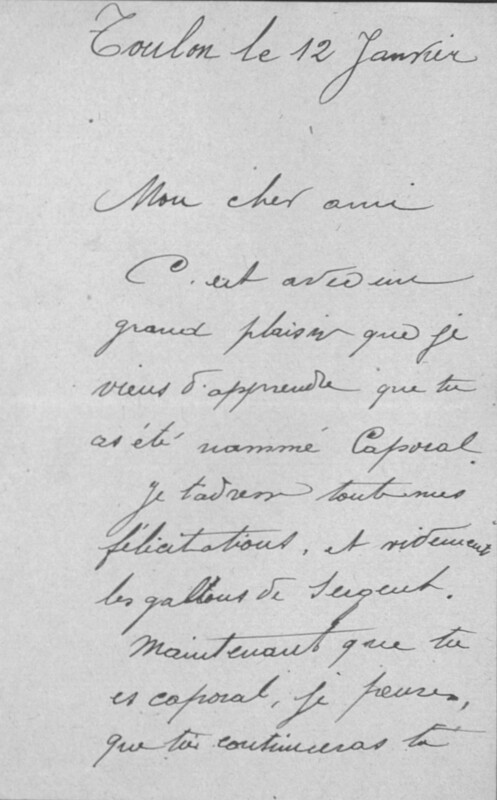 Toulon le 12 Janvier
Mon cher ami
C'est avec un
grand plaisir que je
viens d'apprendre que tu
as été nommé Caporal.
Je t'adresse toute mes
félicitations, et videment
les gallons de Sergent.
Maintenant que tu
es caporal, je pense,
que tu continueras ta